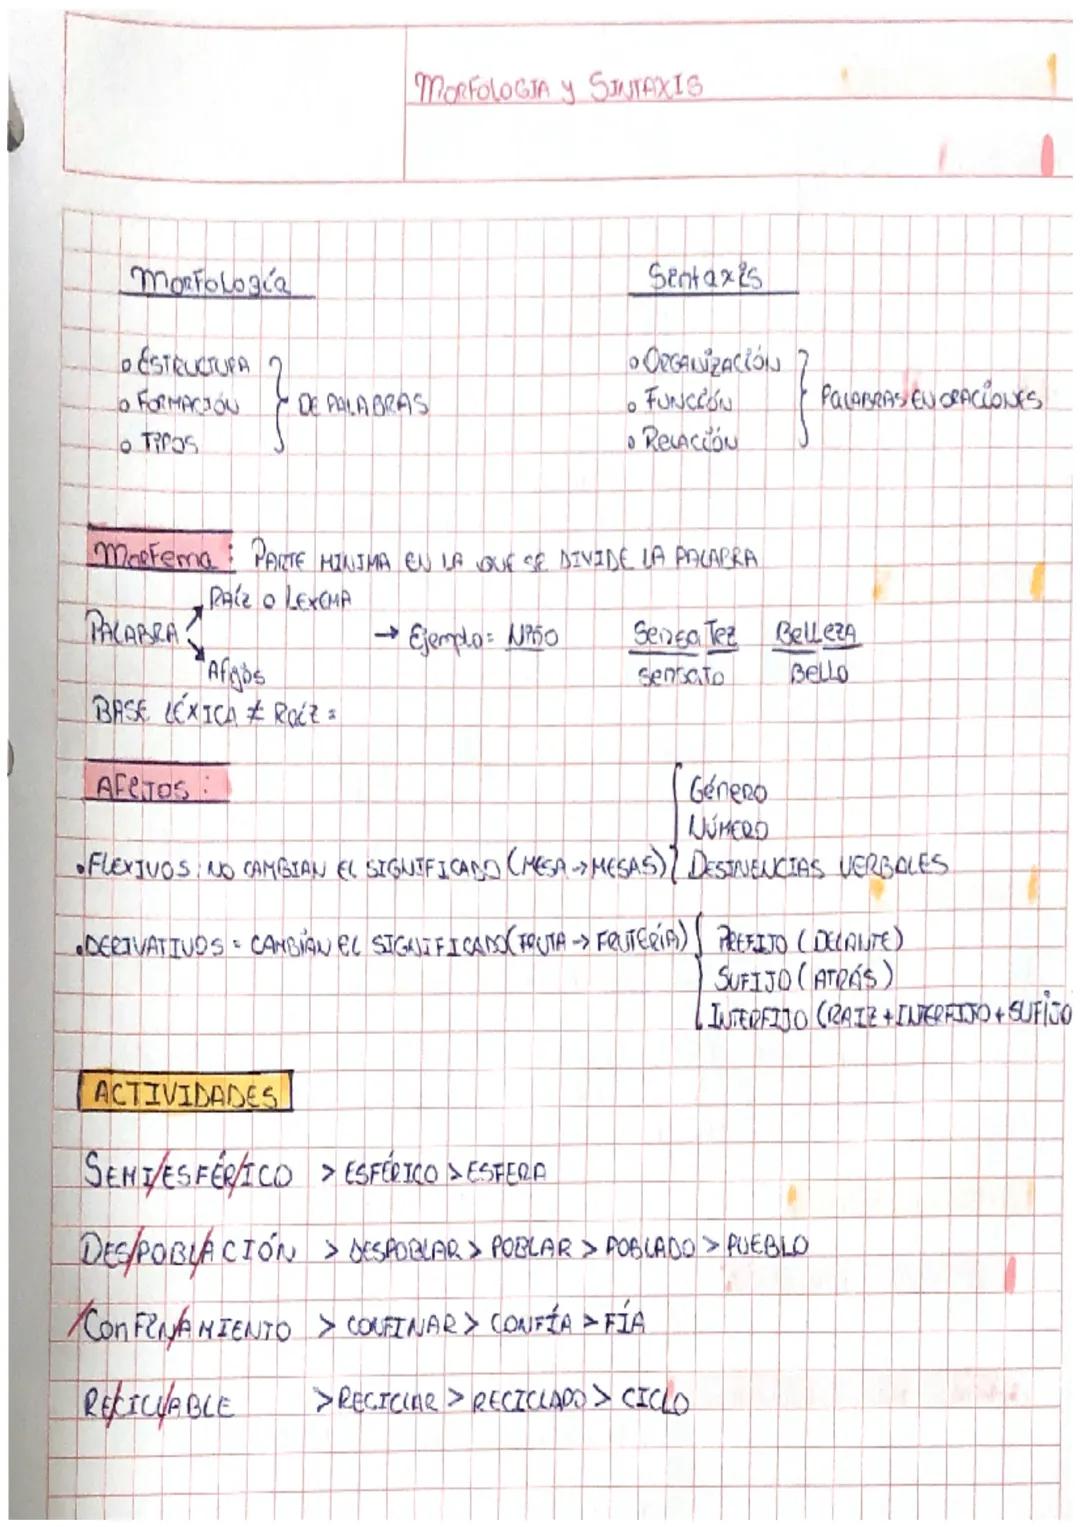 MORFOLOGIA y SINTAXIS
Morfología
Sintaxis
ESTRUCTURA
FORMACIÓN
TIPOS
DE PALABRAS
ORGANIZACIÓN
FUNCIÓN
RELACIÓN
PALABRAS EN ORACIONES
Morfema: PARTE MINIMA EN LA QUE SE DIVIDE LA PALABRA
PALABRA
RAÍZ O LEXEMA
Afijos
→ Ejemplo= Niño
SensaTez
sensato
BelleZA
Bello
BASE LÉXICA ≠ Raíz =
AFIJOS:
FLEXIVOS: NO CAMBIAN EL SIGNIFICADO (MESA → MESAS)
Género
NÚMERO
DESINENCIAS VERBALES
DERIVATIVOS = CAMBIAN EL SIGNIFICADO (FRUTA → FRUTERÍA)
PREFIJO (DELANTE)
SUFIJO (ATRÁS)
INTERFIJO (RAIZ + INTERFIJO + SUFIJO
ACTIVIDADES
SEMI/ESFÉR/ICO > ESFÉRICO > ESFERA
DES/POBLA/CIÓN > DESPOBLAR > POBLAR > POBLADO > PUEBLO
/CONFINA/MIENTO > CONFINAR > CONFÍA > FÍA
RE/CICL/ABLE > RECICLAR > RECICLADO > CICLO